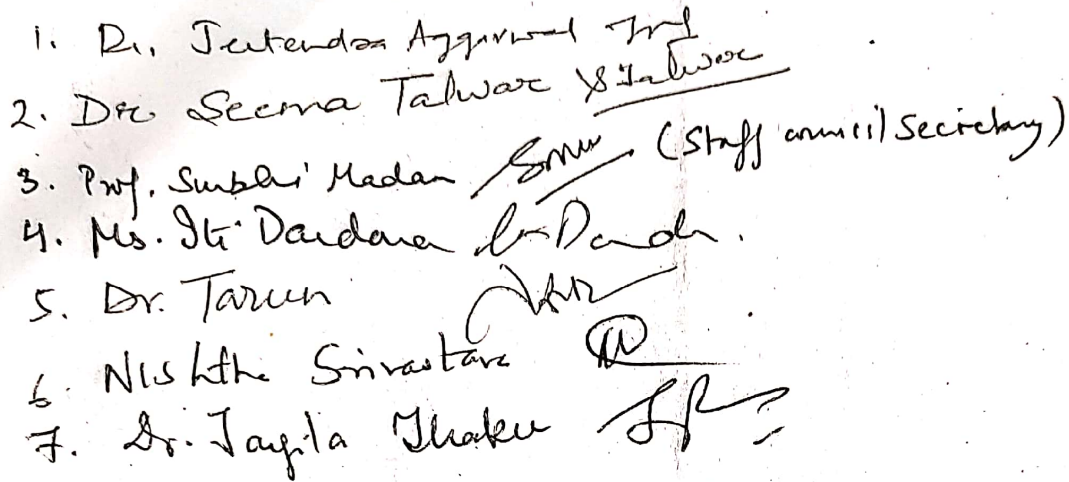 1. Dr. Jeetendra Aggarwal
2. Dr. Seema Talwar STalwar
3. Prof. Surbhi Madan (Staff council Secretary)
4. Ms. Iti Dandona
5. Dr. Tarun
6. Nishtha Srivastava
7. Dr. Jagila Thakur